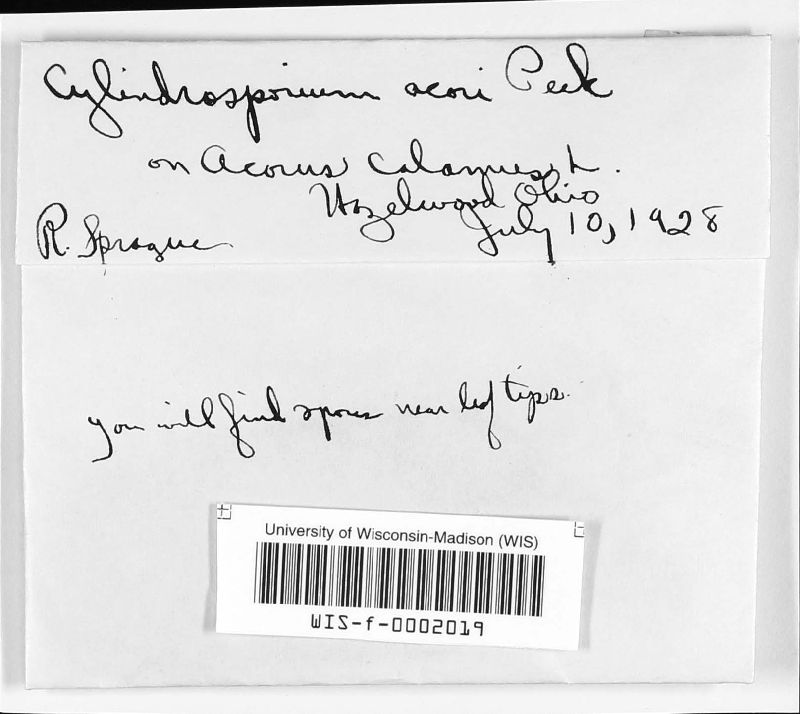 Cylindrosporium acori Peck
on Acorus Calamus L.
Hazelwood Ohio
R. Sprague July 10, 1928
you will find spores near leaf tips.
University of Wisconsin-Madison (WIS)
WIS-f-0002019